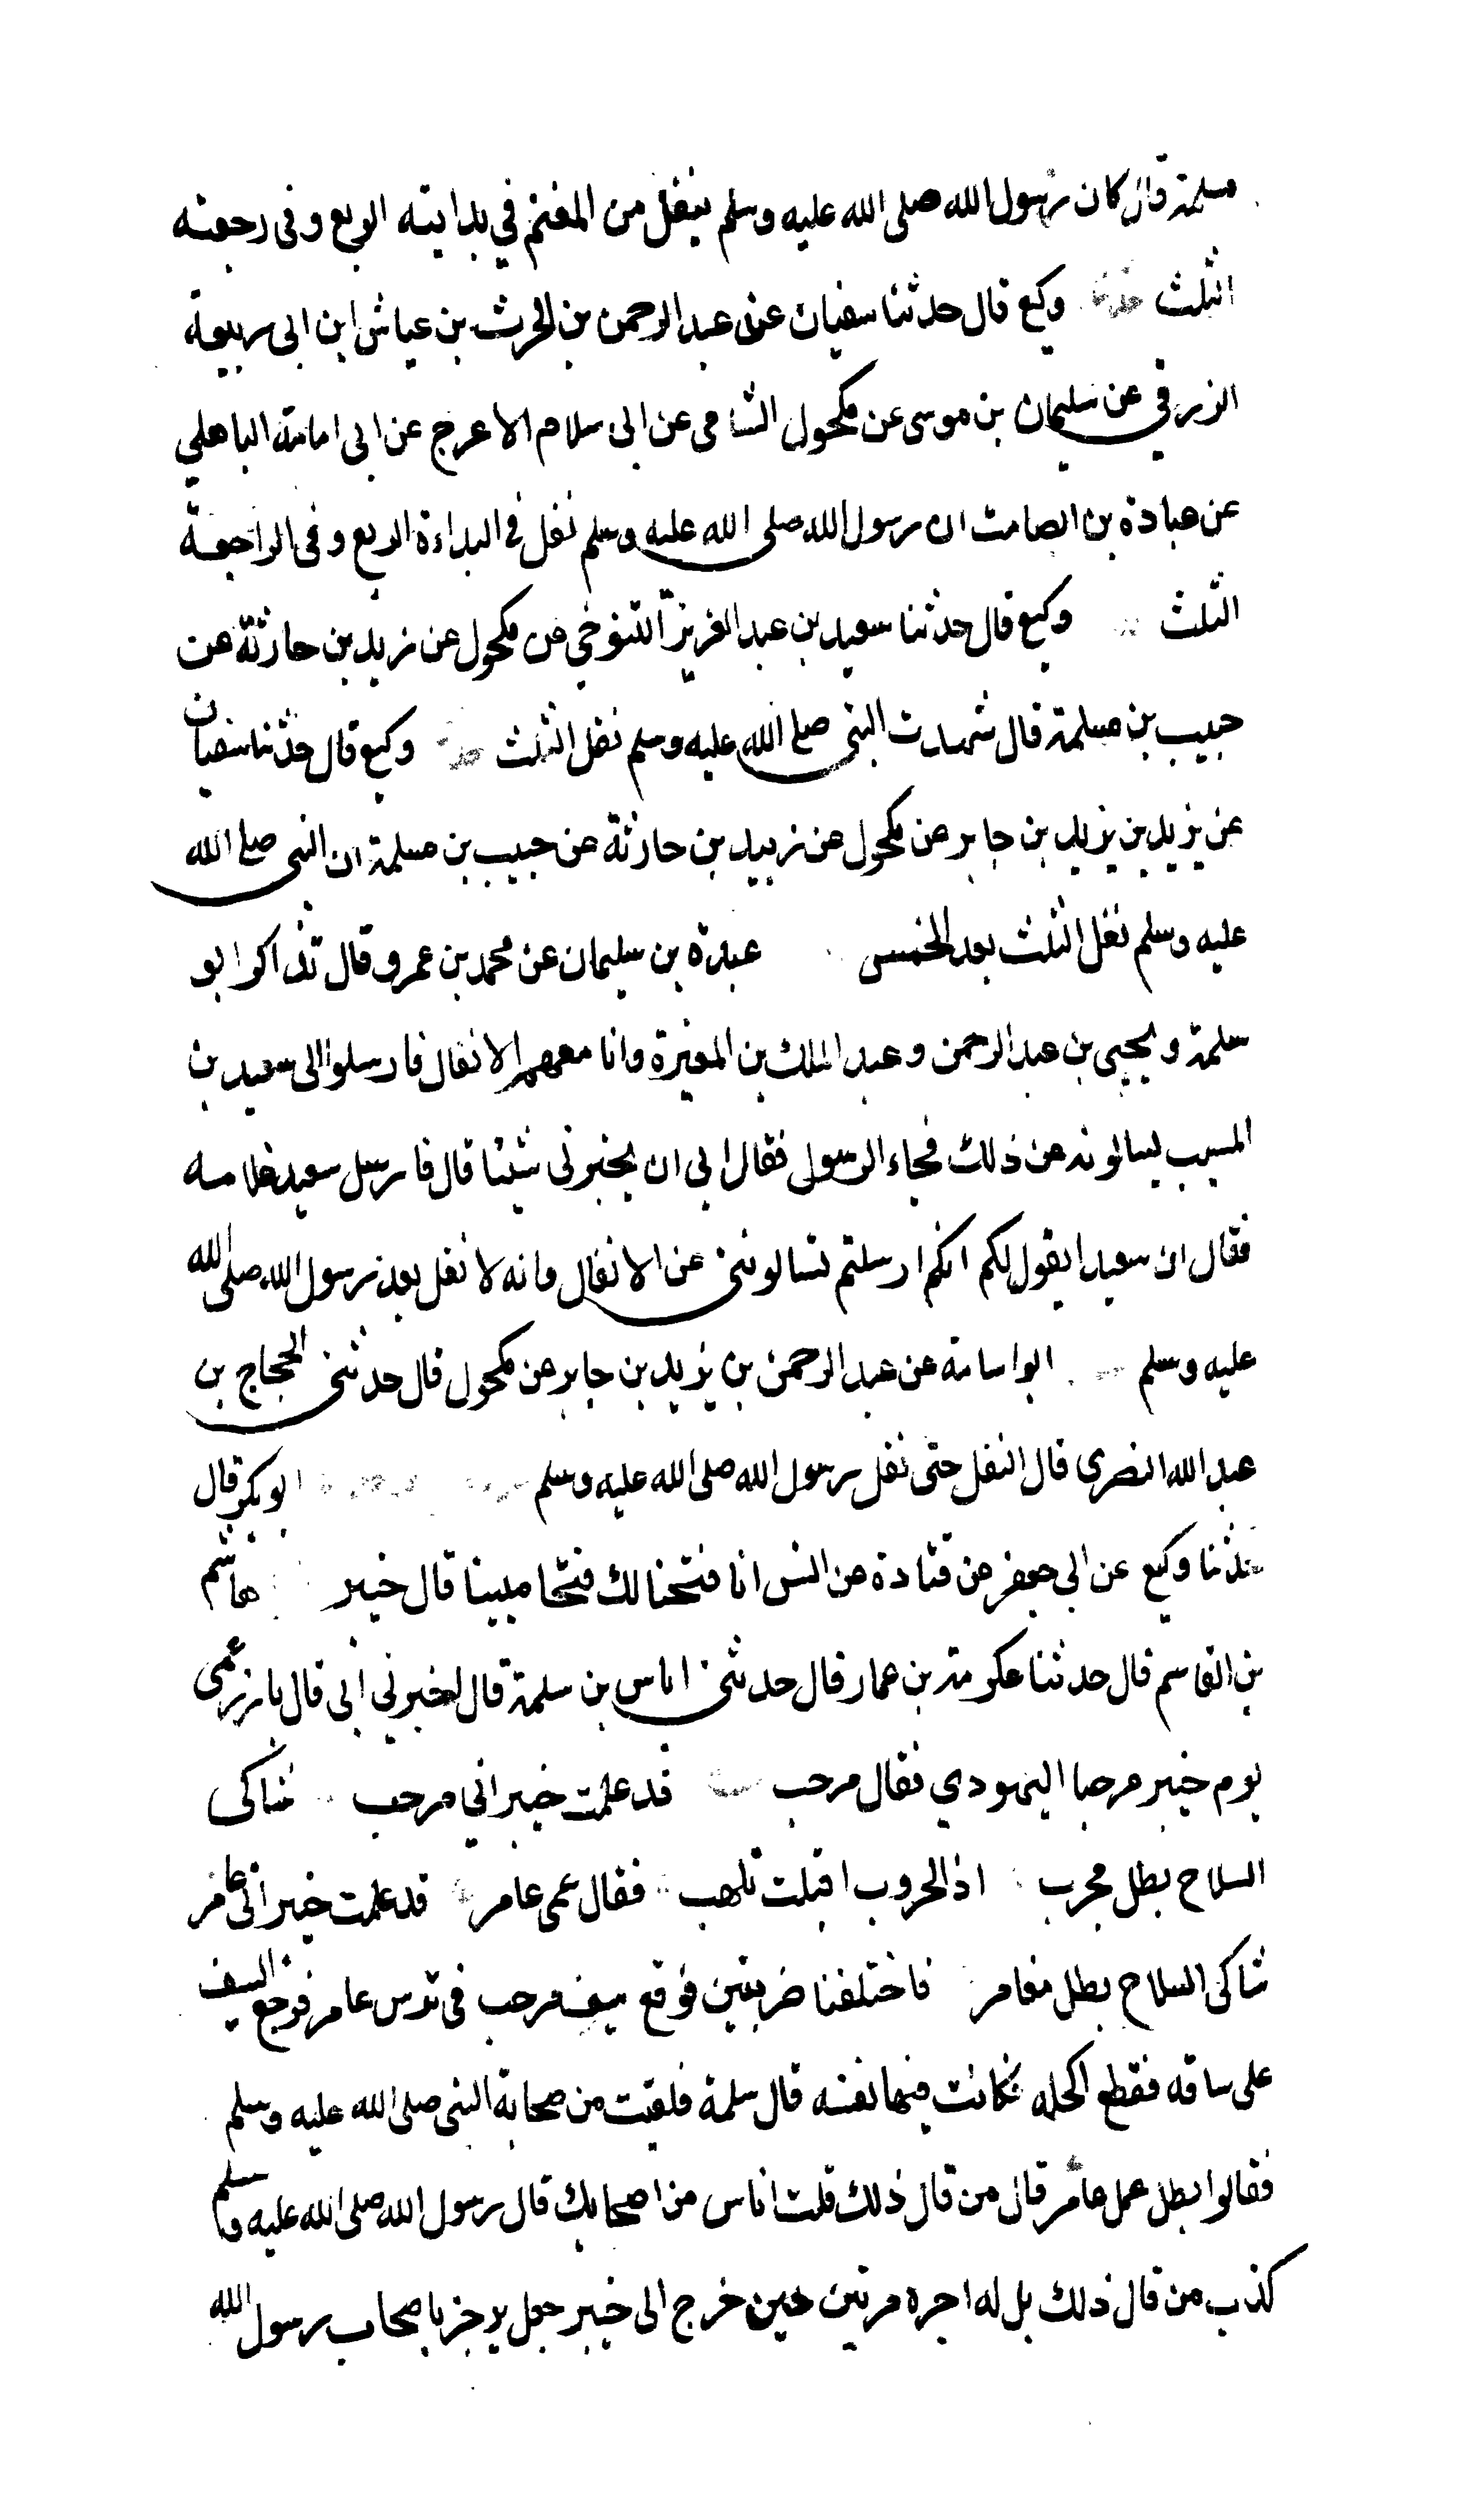 مسلمة قال كان رسول الله صلى الله عليه وسلم ينفل من المغنم في بدايته الربع وفى رجعته
الثلث حدثنا وكيع قال حدثنا سفيان عن عبد الرحمن بن الحرث بن عياش ابن ابى ربيعة
الزرقي عن سليمان بن موسى عن مكحول الشامى عن ابى سلام الاعرج عن ابى امامة الباهلي
عن عبادة بن الصامت ان رسول الله صلى الله عليه وسلم نفل في البداءة الربع وفى الراجعة
الثلث وكيع قال حدثنا سعيد بن عبد العزيز التنوخي عن مكحول عن زيد بن حارثة عن
حبيب بن مسلمة قال شهدت النبى صلع الله عليه وسلم نفل الثلث وكيع قال حدثنا سفيان
عن يزيد بن يزيد بن جابر عن مكحول عن زيد بن حارثة عن حبيب بن مسلمة ان النبى صلع الله
عليه وسلم نفل الثلث بعد الخمس عبدة بن سليمان عن محمد بن عمرو قال تذاكر ابو
سلمة ويحيى بن عبد الرحمن وعبد الملك بن المغيرة وانا معهم الانفال فارسلوا الى سعيد بن
المسيب يسالونه عن ذلك فجاء الرسول فقال ابى ان يخبرنى شيئا قال فارسل سعيد غلامه
فقال ان سعيدا يقول لكم انكم ارسلتم تسالوننى عن الانفال وانه لا نفل بعد رسول الله صلى الله
عليه وسلم ابو اسامة عن عبد الرحمن بن يزيد بن جابر عن مكحول قال حدثنى الحجاج بن
عبد الله النصرى قال النفل حتى نفل رسول الله صلى الله عليه وسلم ابو بكر قال
حدثنا وكيع عن ابى جعفر عن قتادة عن انس انا فتحنا لك فتحا مبينا قال خيبر هاشم
بن القاسم قال حدثنا عكرمة بن عمار قال حدثنى اياس بن سلمة قال اخبرني ابى قال بارز عمى
يوم خيبر مرحبا اليهودي فقال مرحب قد علمت خيبر اني مرحب شاكى
السلاح بطل مجرب اذا الحروب اقبلت تلهب فقال عمى عامر قد علمت خيبر انى عامر
شاكى السلاح بطل مغامر فاختلفنا ضربتين فوقع سيف مرحب فى ترس عامر فرجع السيف
على ساقه فقطع اكحله فكانت فيها نفسه قال سلمة فلقيت من صحابة النبى صلى الله عليه وسلم
فقالوا بطل عمل عامر قال من قال ذلك قلت اناس من اصحابك قال رسول الله صلى الله عليه وسلم
كذب من قال ذلك بل له اجره مرتين حين خرج الى خيبر جعل يرجز باصحاب رسول الله